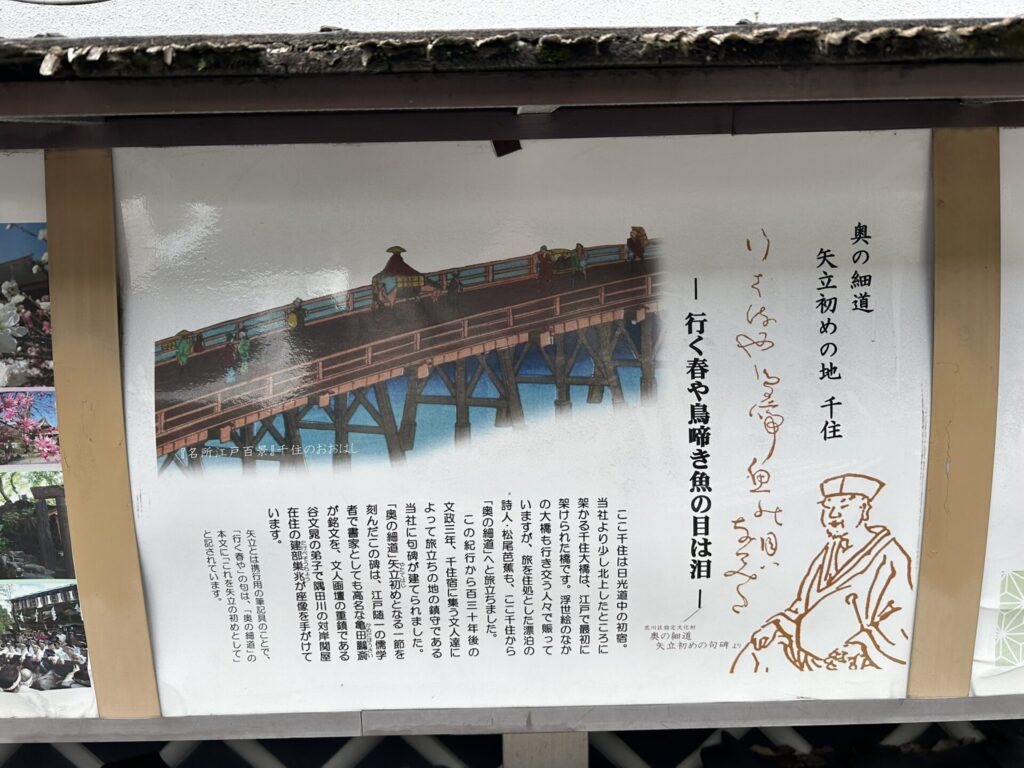 奥の細道
矢立初めの地 千住
行く春や鳥啼き魚の目は泪
― 行く春や鳥啼き魚の目は泪 ―
荒川区指定文化財
奥の細道
矢立初めの句碑 より
『名所江戸百景』千住のおおはし
ここ千住は日光道中の初宿。
当社より少し北上したところに
架かる千住大橋は、江戸で最初に
架けられた橋です。浮世絵のなか
の大橋も行き交う人々で賑って
いますが、旅を住処とした漂泊の
詩人・松尾芭蕉も、ここ千住から
「奥の細道」へと旅立ちました。
この紀行から百三十年後の
文政三年、千住宿に集う文人達に
よって旅立ちの地の鎮守である
当社に句碑が建てられました。
「奥の細道」矢立初めとなる一節を
刻んだこの碑は、江戸随一の儒学
者で書家としても高名な亀田鵬斎
が銘文を、文人画壇の重鎮である
谷文晁の弟子で隅田川の対岸関屋
在住の建部巣兆が座像を手がけて
います。
矢立とは携行用の筆記具のことで、
「行く春や」の句は、「奥の細道」の
本文に「これを矢立の初めとして」
と記されています。